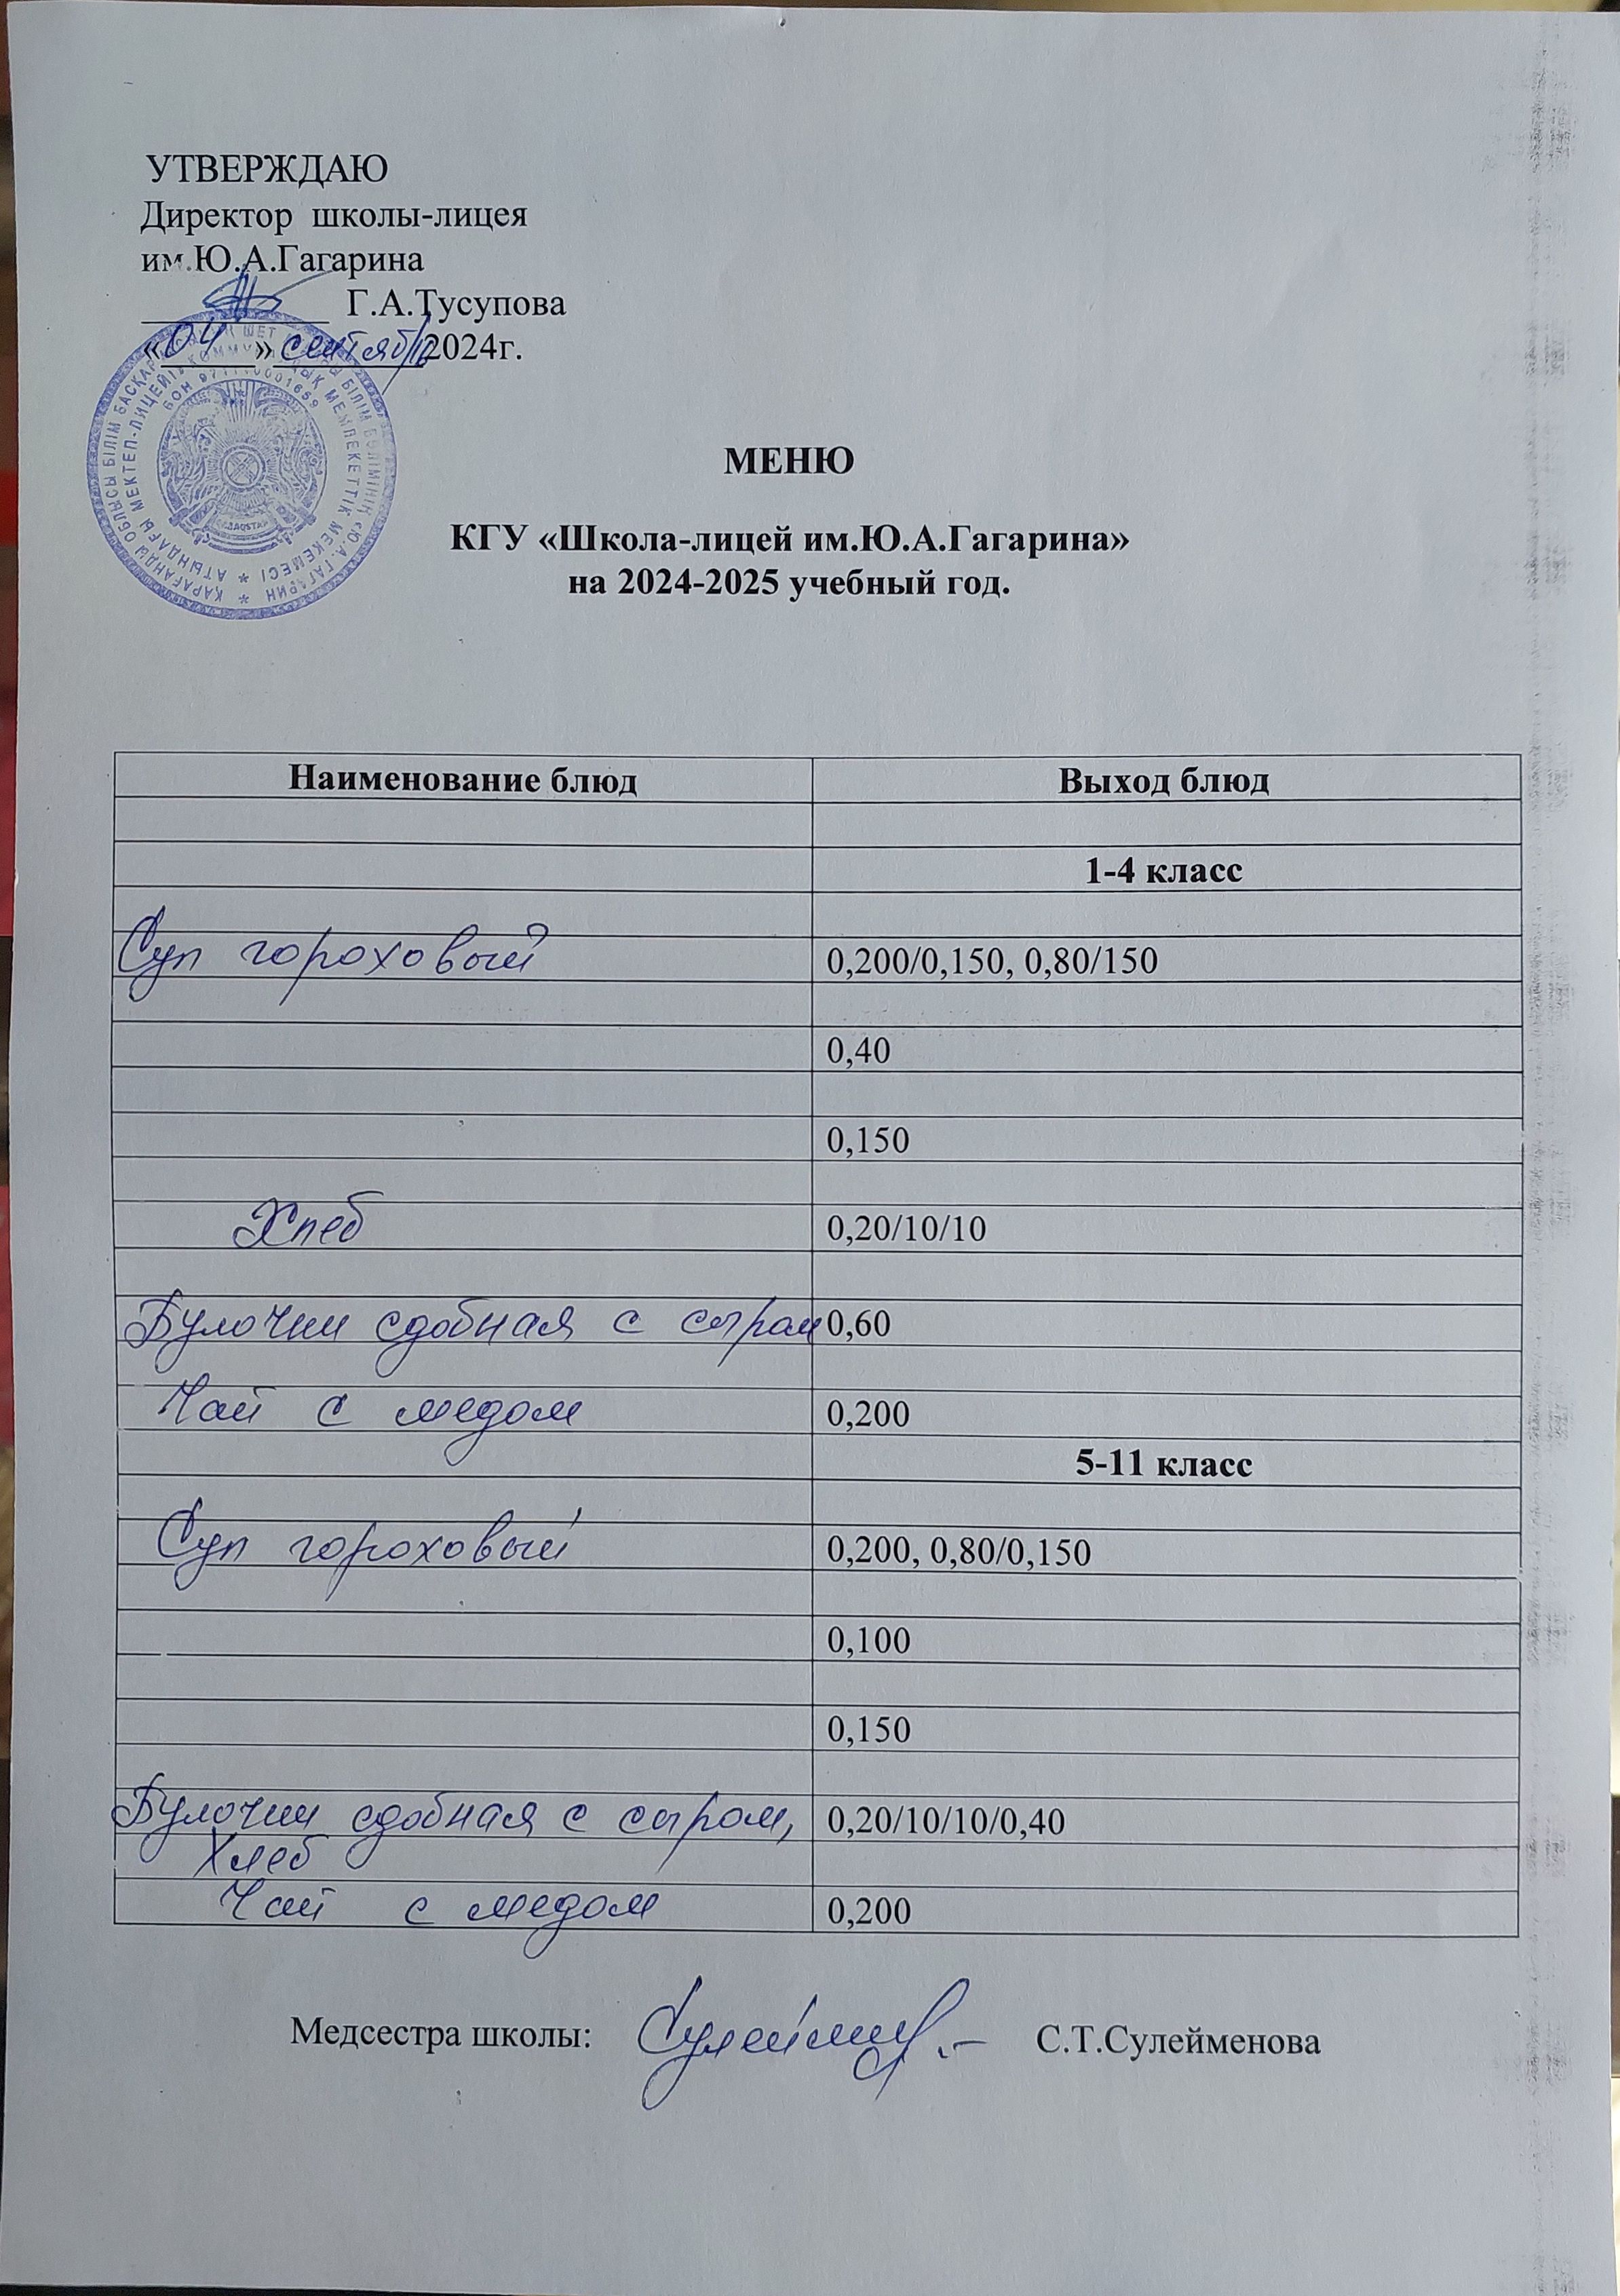 УТВЕРЖДАЮ
Директор школы-лицея
им.Ю.А.Гагарина
Г.А.Тусупова
«04» сентябрь 2024г.
МЕНЮ
КГУ «Школа-лицей им.Ю.А.Гагарина»
на 2024-2025 учебный год.
Наименование блюд Выход блюд
1-4 класс
Суп гороховый 0,200/0,150, 0,80/150
0,40
0,150
Хлеб 0,20/10/10
Булочки сдобная с сыром 0,60
Чай с медом 0,200
5-11 класс
Суп гороховый 0,200, 0,80/0,150
0,100
0,150
Булочки сдобная с сыром, 0,20/10/10/0,40
Хлеб
Чай с медом 0,200
Медсестра школы: С.Т.Сулейменова